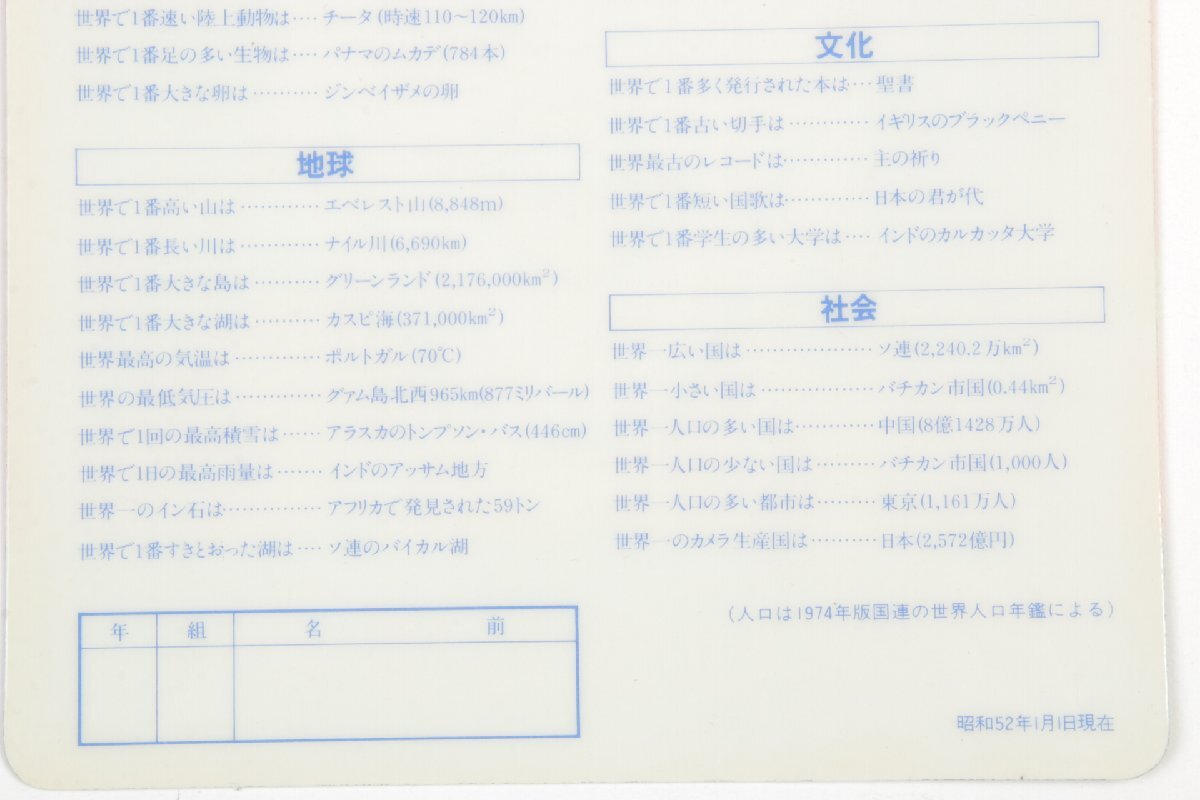 世界で1番速い陸上動物は････チータ(時速110〜120km)
世界で1番足の多い生物は････パナマのムカデ(784本)
世界で1番大きな卵は･･････････ジンベイザメの卵
地球
世界で1番高い山は････････････エベレスト山(8,848m)
世界で1番長い川は････････････ナイル川(6,690km)
世界で1番大きな島は･･････････グリーンランド(2,176,000km²)
世界で1番大きな湖は･･････････カスピ海(371,000km²)
世界最高の気温は･････････････ポルトガル(70℃)
世界の最低気圧は･････････････グァム島北西965km(877ミリバール)
世界で1回の最高積雪は･･････アラスカのトンプソン・バス(446cm)
世界で1日の最高雨量は･･･････インドのアッサム地方
世界一のイン石は･･････････････アフリカで発見された59トン
世界で1番すきとおった湖は････ソ連のバイカル湖
年 組 名 前
文化
世界で1番多く発行された本は･･･聖書
世界で1番古い切手は････････････イギリスのブラックペニー
世界最古のレコードは･････････････主の祈り
世界で1番短い国歌は･････････････日本の君が代
世界で1番学生の多い大学は････インドのカルカッタ大学
社会
世界一広い国は･･･････････････････ソ連(2,240.2万km²)
世界一小さい国は･････････････････バチカン市国(0.44km²)
世界一人口の多い国は････････････中国(8億1428万人)
世界一人口の少ない国は･････････バチカン市国(1,000人)
世界一人口の多い都市は･････････東京(1,161万人)
世界一のカメラ生産国は･･････････日本(2,572億円)
(人口は1974年版国連の世界人口年鑑による)
昭和52年1月1日現在